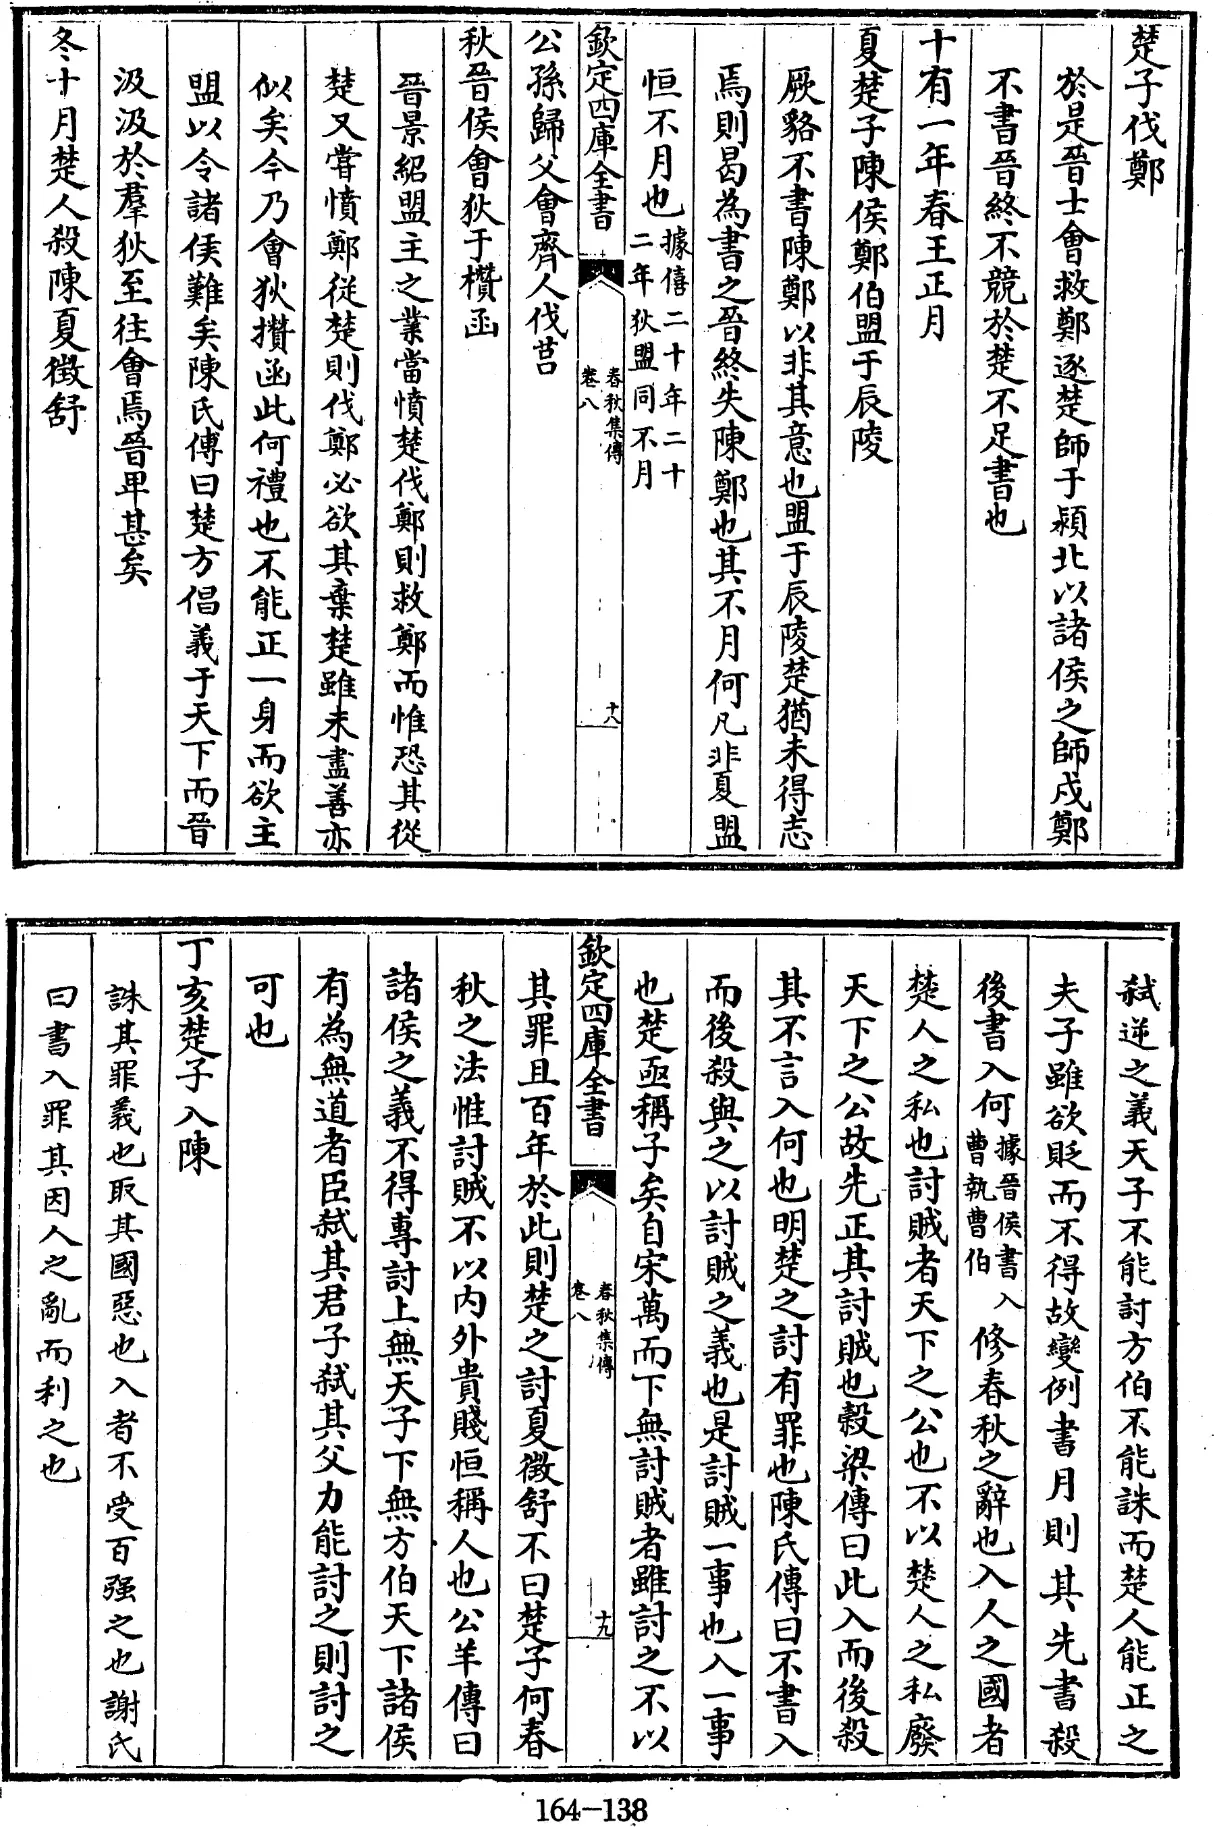 楚子伐鄭
於是晉士會救鄭逐楚師于潁北以諸侯之師戍鄭
不書晉終不競於楚不足書也
十有一年春王正月
夏楚子陳侯鄭伯盟于辰陵
厥貉不書陳鄭以非其意也盟于辰陵楚猶未得志
焉則曷為書之晉終失陳鄭也其不月何凡非夏盟
恒不月也據僖二十年二十二年狄盟同不月
欽定四庫全書 春秋集傳 卷八 十八
公孫歸父會齊人伐莒
秋晉侯會狄于欑函
晉景紹盟主之業當憤楚伐鄭則救鄭而惟恐其從
楚又當憤鄭從楚則伐鄭必欲其棄楚雖未盡善亦
似矣今乃會狄攢函此何禮也不能正一身而欲主
盟以令諸侯難矣陳氏傳曰楚方倡義于天下而晉
汲汲於羣狄至往會焉晉卑甚矣
冬十月楚人殺陳夏徵舒
弑逆之義天子不能討方伯不能誅而楚人能正之
夫子雖欲貶而不得故變例書月則其先書殺
後書入何據晉侯書入曹執曹伯修春秋之辭也入人之國者
楚人之私也討賊者天下之公也不以楚人之私廢
天下之公故先正其討賊也榖梁傳曰此入而後殺
其不言入何也明楚之討有罪也陳氏傳曰不書入
而後殺與之以討賊之義也是討賊一事也入一事
也楚亟稱子矣自宋萬而下無討賊者雖討之不以
欽定四庫全書 春秋集傳 卷八 十九
其罪且百年於此則楚之討夏徵舒不曰楚子何春
秋之法惟討賊不以內外貴賤恒稱人也公羊傳曰
諸侯之義不得專討上無天子下無方伯天下諸侯
有為無道者臣弑其君子弑其父力能討之則討之
可也
丁亥楚子入陳
誅其罪義也取其國惡也入者不受百强之也謝氏
曰書入罪其因人之亂而利之也
164-138